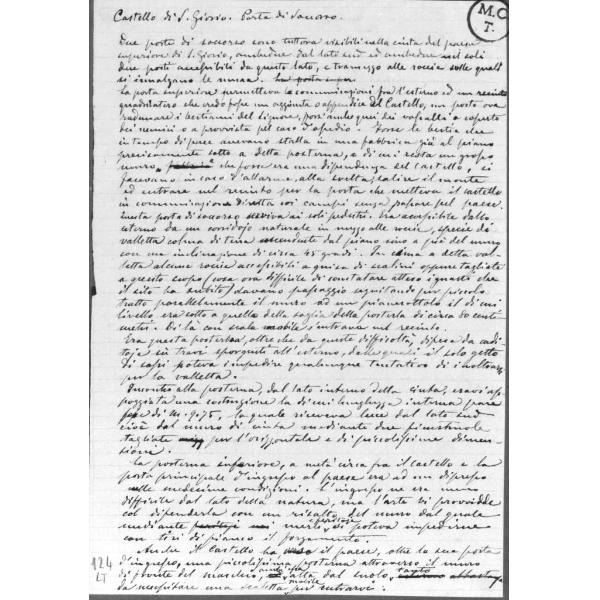 M.C.
T.
Castello di S. Giorio. Porte di Soccorso.
Due porte di soccorso sono tuttora visibili nella cinta del paese
superiore di S. Giorio, ambedue dal lato sud ed ambedue nei soli
due posti accessibili da questo lato, e framezzo alle roccie sulle quali
si innalzano le mura. La porta super
La porta superiore permetteva la comunicazione fra l'esterno ed un recinto
quadrilatero che credo fosse un aggiunta o appendice del Castello, un posto ove
radunare i bestiami del Signore, fors'anche quei dei vassalli a coperto
dei nemici o a provvista pel caso d'assedio. Forse le bestie che
in tempo di pace avevano stalla in una fabbrica già al piano
precisamente sotto a detta posterna, e di cui resta un grosso
muro, che forse era una dipendenza del Castello, si
facevano in caso d'allarme, alla svelta, salire il monte
ed entrare nel recinto per la porta che metteva il castello
in comunicazione diretta coi campi senza passare pel paese.
Questa porta di soccorso serviva ai soli pedestri. Era accessibile dallo
esterno da un corridojo naturale in mezzo alle roccie, specie di
valletta colma di terra scendente dal piano sino a piè del muro
con una inclinazione di circa 45 gradi. In cima a detta val-
letta alcune roccie accessibili a guisa di scalini oppure tagliate
a questo scopo (cosa ora difficile di constatare atteso i guasti che
il sito ha subito) davano passaggio seguitando per piccolo
tratto parallelamente il muro ad un pianerottolo il di cui
livello era sotto a quello della soglia della posterla di circa 60 centi-
metri. Di là con scala mobile s'entrava nel recinto.
Era questa posterna, oltre che da queste difficoltà, difesa da cadi-
toja su travi sporgenti all'esterno, dalle quali il solo getto
di sassi poteva impedire qualunque tentativo di inoltrarsi
per la valletta.
Incontro alla posterna, dal lato interno della cinta, eravi ap-
poggiata una costruzione la di cui lunghezza interna pare
fosse di m. 9.75, la quale riceveva luce dal lato sud
cioè dal muro di cinta mediante due finestruole
tagliate per l'orizzontale e di piccolissime dimen-
sioni.
La posterna inferiore, a metà circa fra il Castello e la
porta principale d'ingresso al paese era ad un dipresso
nelle medesime condizioni. L'ingresso ne era meno
difficile dal lato della natura, ma l'arte vi provvidde
col difenderla con un risalto del muro dal quale
mediante feritoje nei merli si poteva impedirne
con tiri di fianco il forzamento.
Anche il Castello ha il paese, oltre la sua porta
d'ingresso, una piccolissima posterna attraverso il muro
di fronte del maschio, alta dal suolo, tanto
da necessitare una scaletta mobile per entrarvi.
124
LT